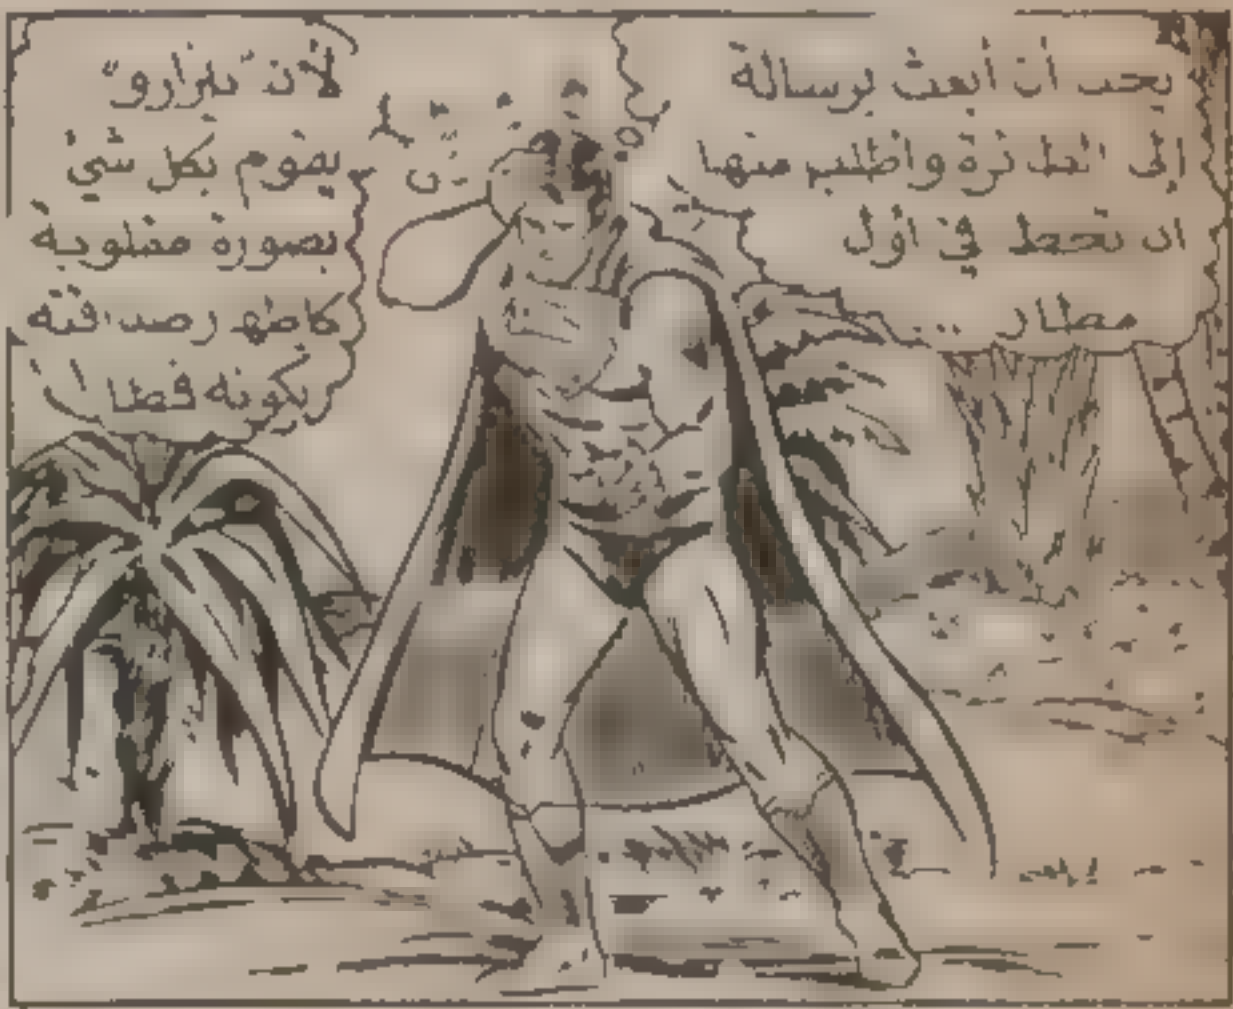 يجب أن أبعث برسالة
إلى الطائرة واطلب منها
ان تحط في أول
مطار ...
لأن "بيزارو"
يقوم بكل شيئ
بصورة مقلوبة
كاظهار صداقته
بكونه فظا !